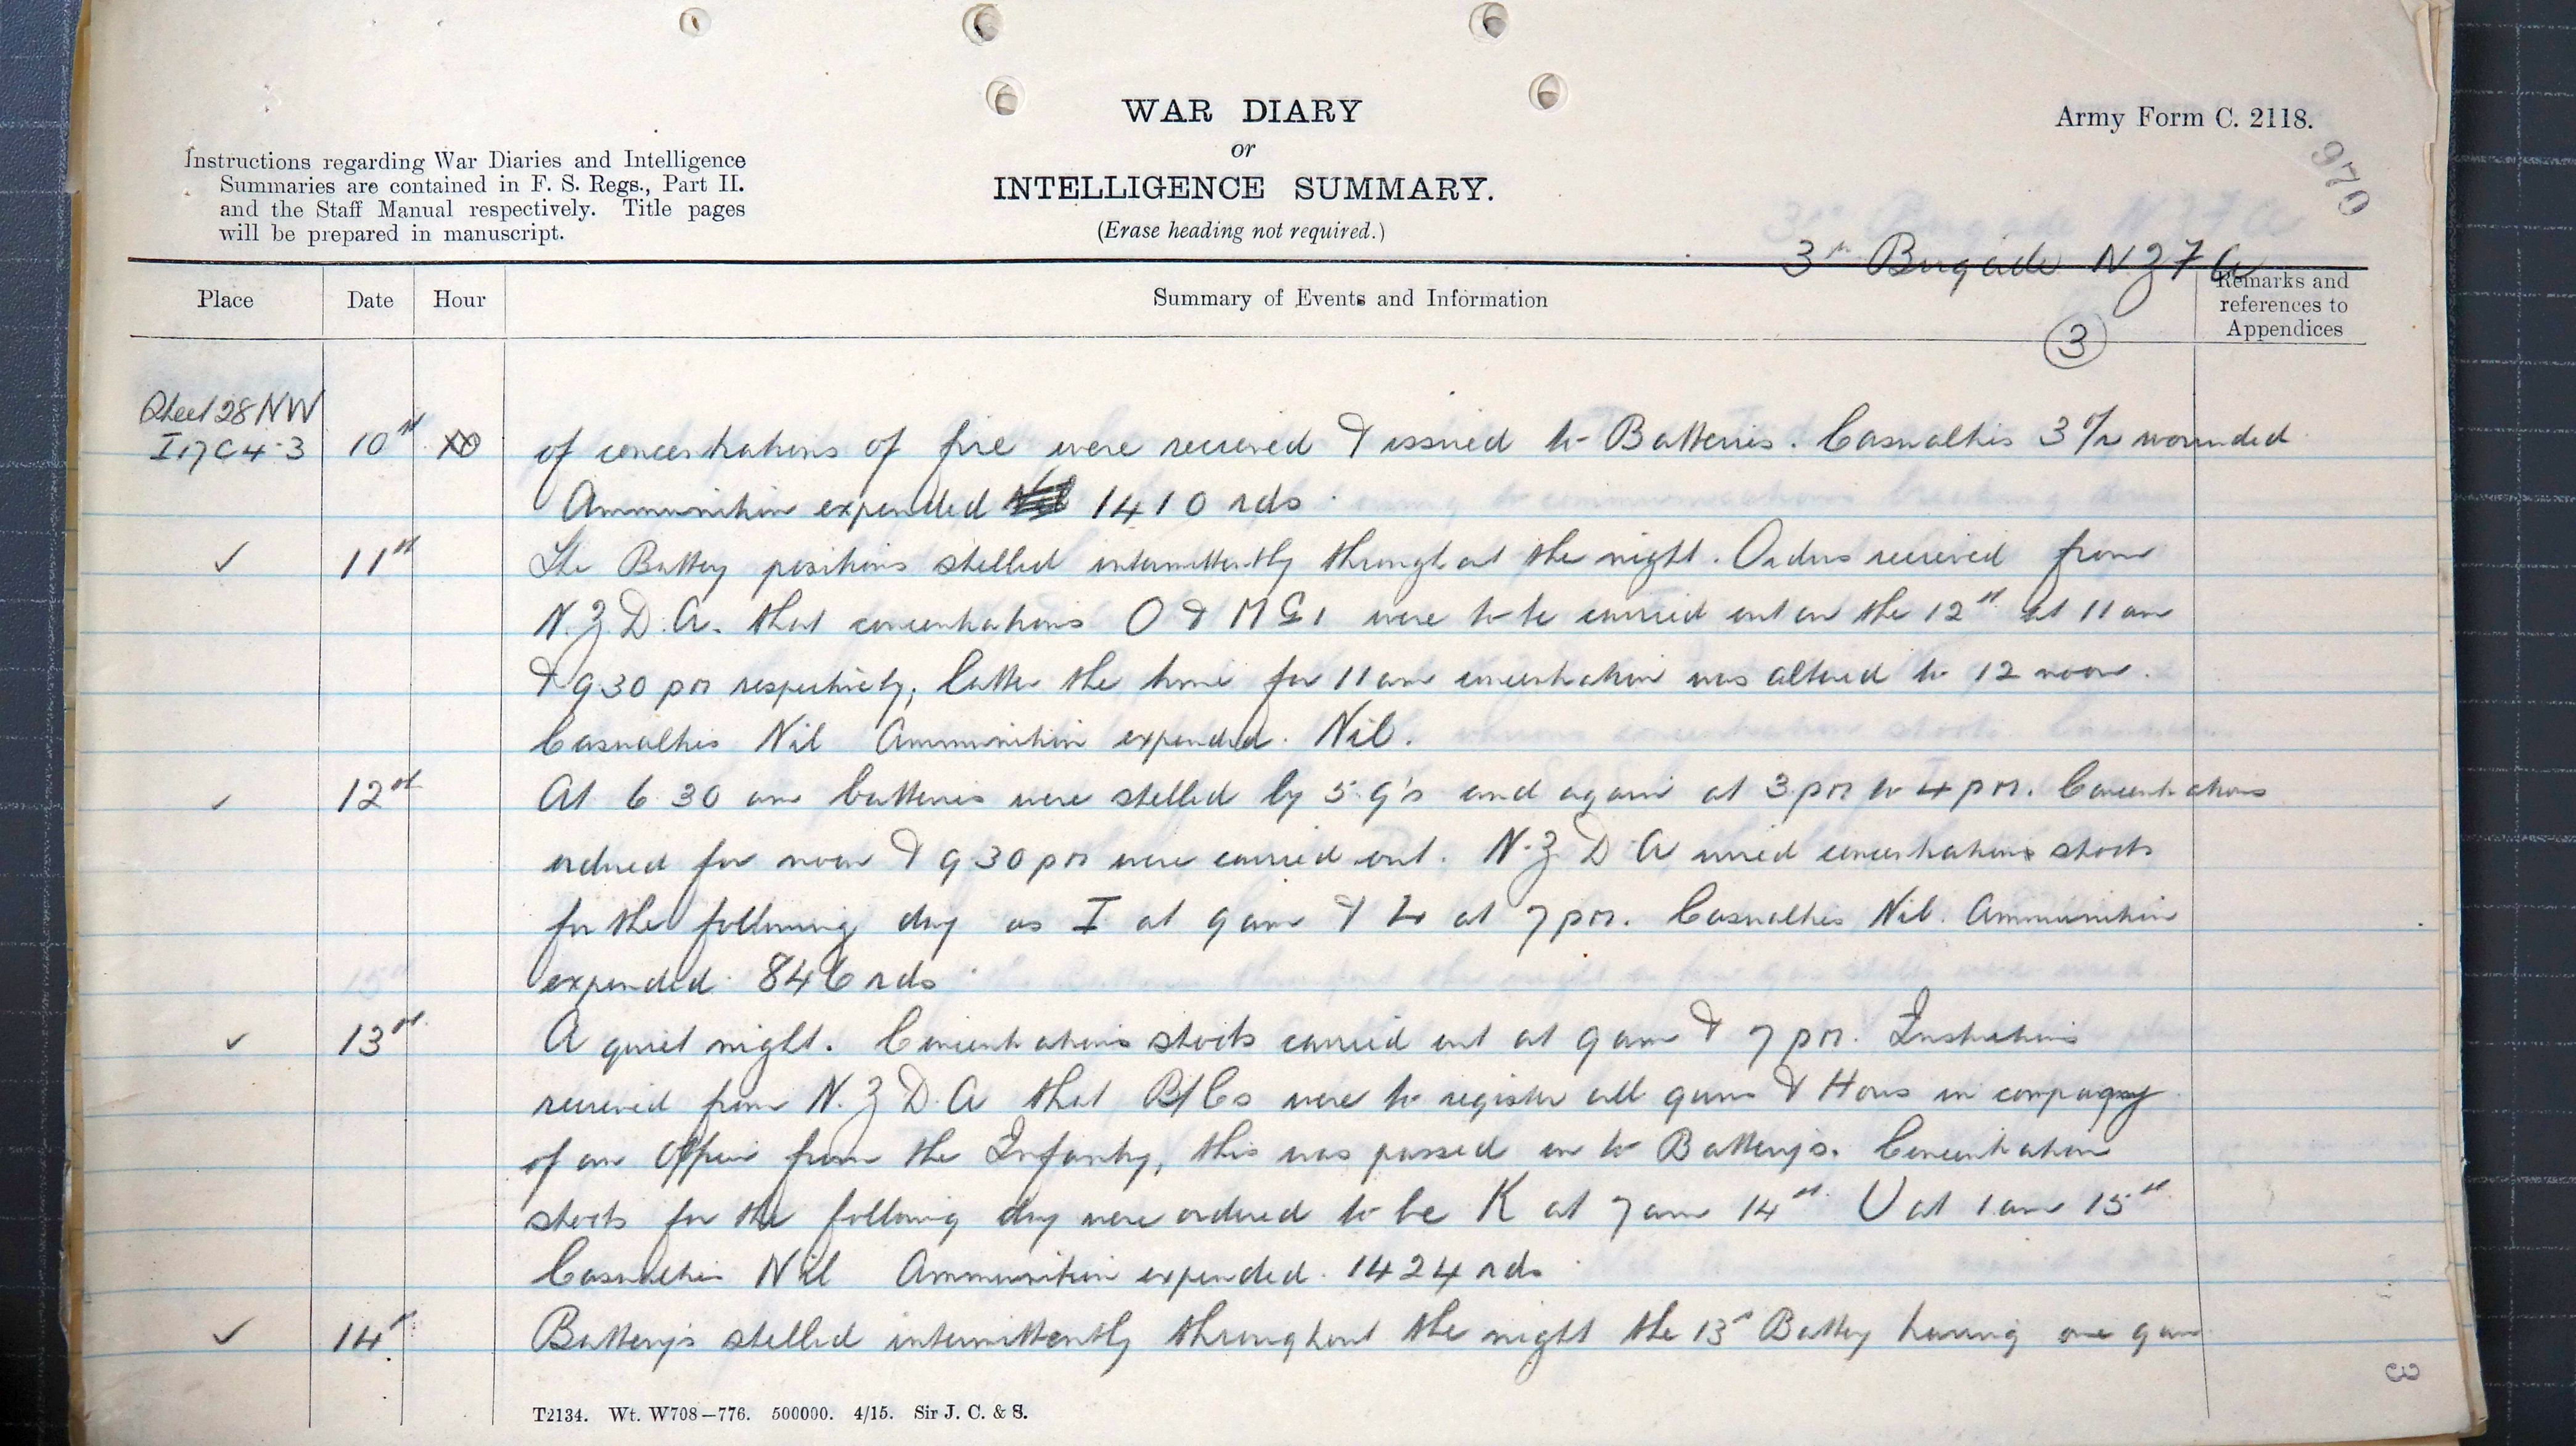 WAR DIARY
or
INTELLIGENCE SUMMARY.
(Erase heading not required.)
Army Form C. 2118.
970
Instructions regarding War Diaries and Intelligence
Summaries are contained in F. S. Regs., Part II.
and the Staff Manual respectively. Title pages
will be prepared in manuscript.
3rd Brigade NZFA
Place Date Hour Summary of Events and Information Remarks and references to Appendices
3
Sheet 28 NW
I17C4.3 10th of concentrations of fire were received & issued to Batteries. Casualties 3 O/R wounded
Ammunition expended 1410 rds.
✓ 11th The Battery positions shelled intermittently throughout the night. Orders received from
N.Z.D.A. that concentrations O & MG1 were to be carried out on the 12th at 11 am
& 9 30 pm respectively; latter the time for 11 am concentration was altered to 12 noon.
Casualties Nil Ammunition expended. Nil.
✓ 12th At 6 30 am batteries were shelled by 5.9's and again at 3 pm to 4 pm. Concentrations
ordered for noon & 9 30 pm were carried out. N.Z.D.A wired concentrations shoots
for the following day as I at 9 am & L at 7 pm. Casualties Nil. Ammunition
expended. 846 rds.
✓ 13th A quiet night. Concentrations shoots carried out at 9 am & 7 pm. Instructions
received from N.Z.D.A that B/Cs were to register all guns & Hows in company
of an Officer from the Infantry, this was passed on to Battery's. Concentration
shoots for the following day were ordered to be K at 7 am 14th. U at 1 am 15th
Casualties Nil Ammunition expended. 1424 rds.
✓ 14th Battery's shelled intermittently throughout the night the 13th Battery having one gun
3
T2134. Wt. W708—776. 500000. 4/15. Sir J. C. & S.